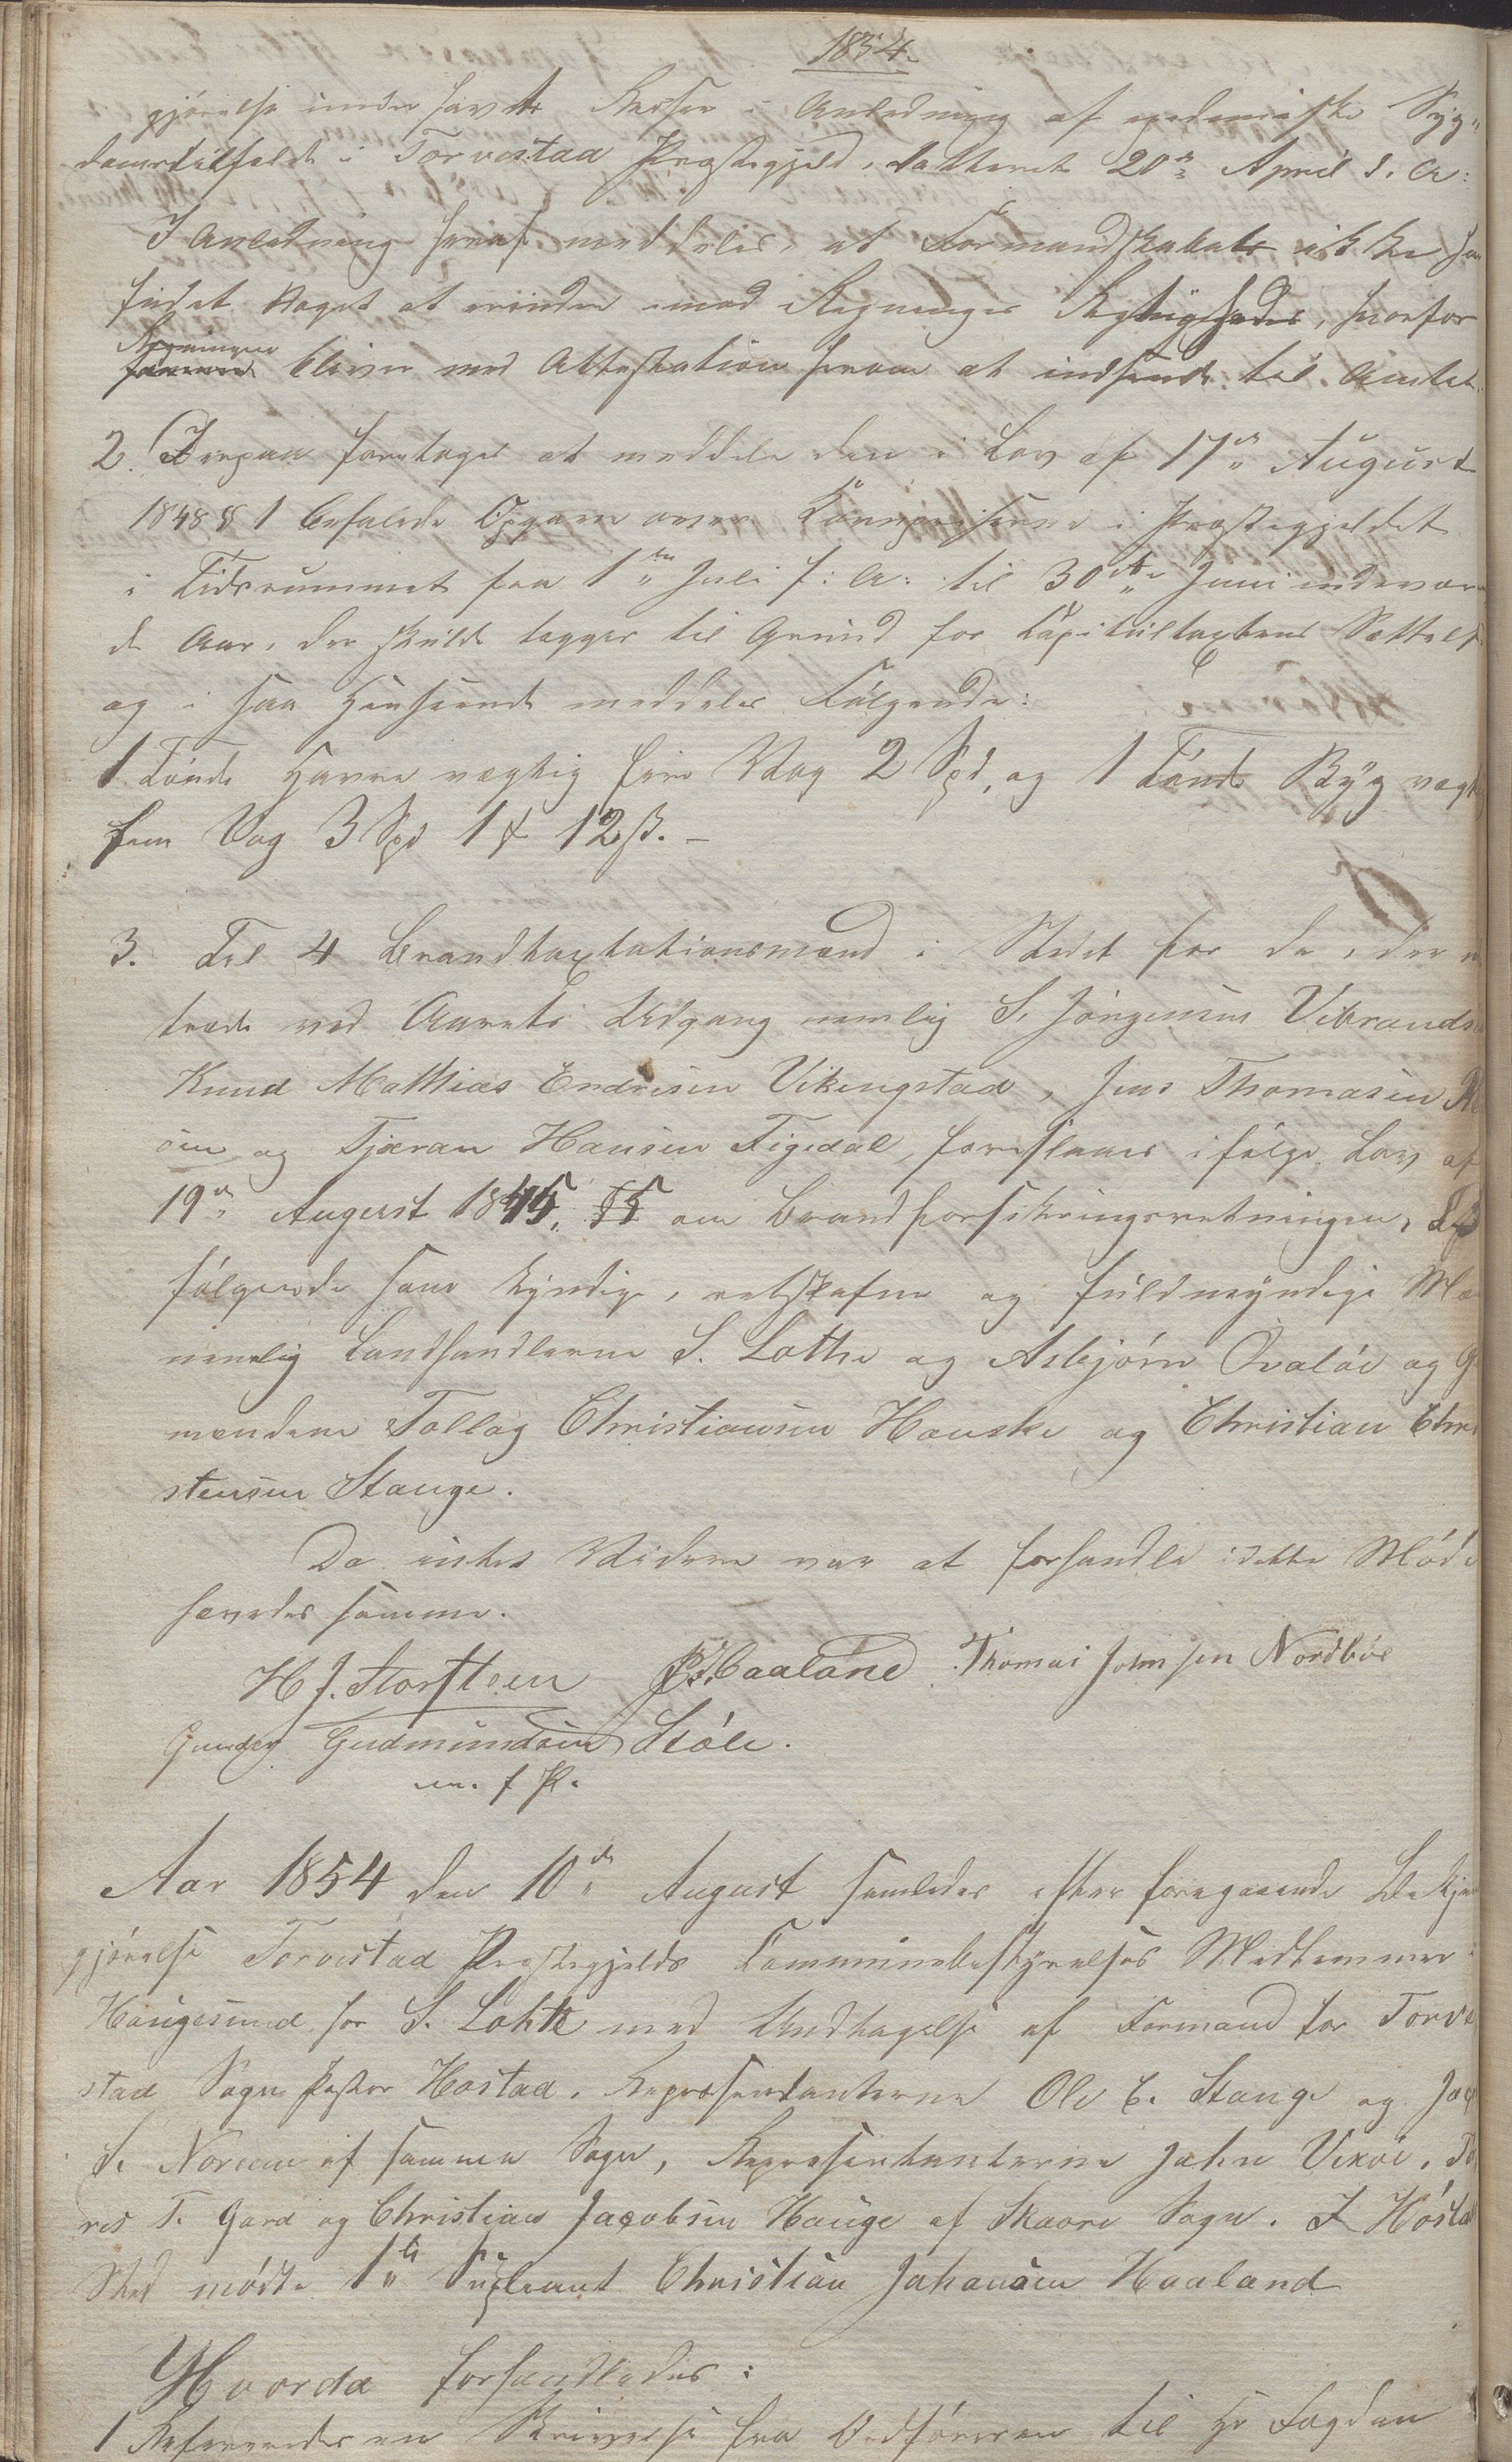 1854.
gjørelse under havte Reiser i Anledning af epedemiske Syg„
domstilfælde i Torvestad Præstegjeld, datteret 20de April d. A:
I Anledning heraf meddeles, at Formandskabet ikke har
findet Noget at erindre imod Regningens Rigtighed, hvorfor
Regningen bliver med Attestation herom at indsende til Amtet.
2. Derpaa foretoges at meddele den i Lov af 17de August
1848 § 1 befalede Opgave over Kornpriserne i Præstegjeldet
i Tidsrummet fra 1ste Juli f: A: til 30te Juni indeværen
de Aar, der skulde lægges til Grund for Capitultaxtens Sættelse
og i saa Henseende meddeles Følgende:
1 Tønde Havre vægtig fire Vog 2 Spd, og 1 Tønde Byg vægtig
fem Vog 3 Spd 1 ₰ 12 ß. —
3. Til 4 Brandtaxtationsmænd i Stedet for de, der ud
træde ved Aarets Udgang nemlig S. Jørgensen Vibrands
Knud Mathias Endresen Vikingstad, Jens Thomasen
øen og Tjæran Hansen Figedal, foreslaaes ifølge Lov af
19de August 1845, § 5 om Brandforsikringsretningen,
følgende som kyndige, retskafne og fuldmyndige Mæ
nemlig Landhandlerne S. Lothe og Asbjørn Ovaløe og G
mændene Tollag Christiansen Hauske og Christian Chri
stensen Stange.
Da intet Videre var at forhandle i dette Møde
hævedes samme.
H J. Storsteen Haaland Thomas Johnsen Nordbøe
Gunder Gudmundsen Støle.
m. f P.
Aar 1854 den 10de August samledes efter foregaaende Bekjen
gjørelse Torvestad Præstegjelds Communebestyrelses Medlemmer i
Haugesund hos S. Lohte med Undtagelse af Formand for Torve
stad Sogn Peder Hostad, Repræsentanterne Ole C. Stange og Jac
S. Noreim af samme Sogn, Repræsentanterne John Vikøe,
res T. Gard og Christian Jacobsen Hauge af Skaare Sogn. I Hósta
Sted mødte 1ste Supleant Christian Johansen Haaland
Hvorda forhandledes:
1 Refereredes en Skrivelse fra Ordføreren til Hr Fogden